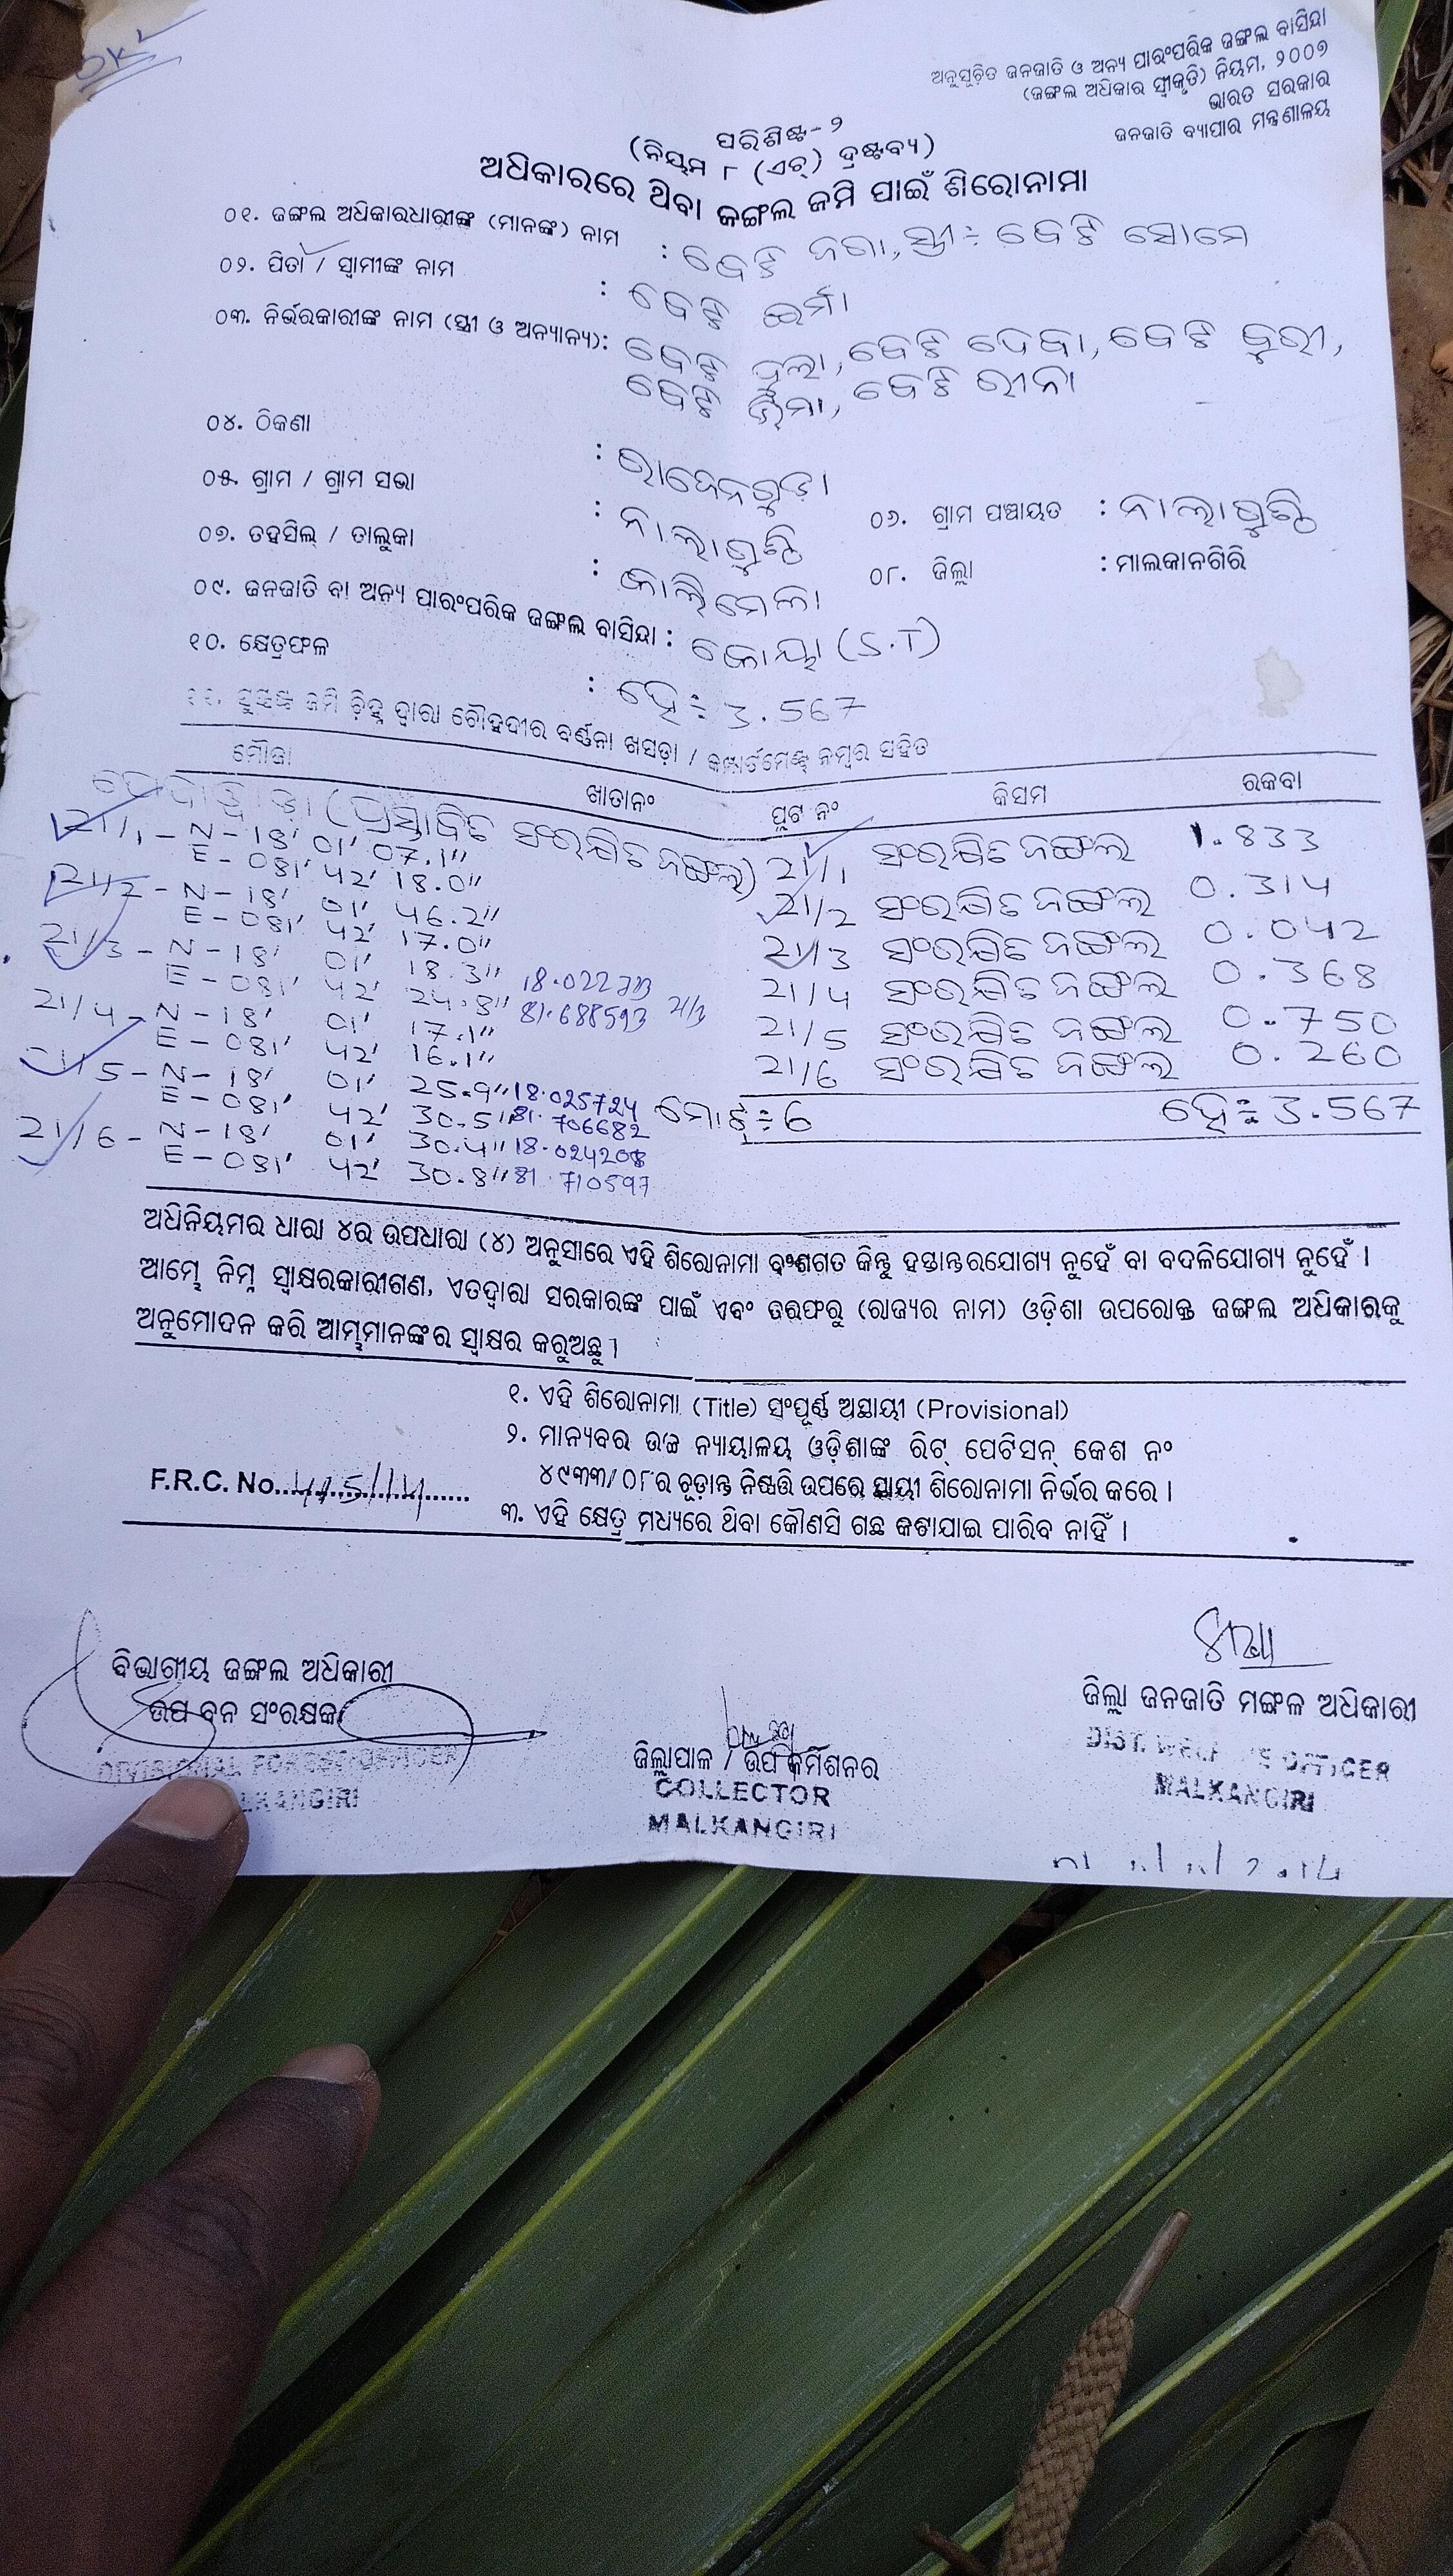 OK
ଅନୁସୂଚିତ ଜନଜାତି ଓ ଅନ୍ୟ ପାରଂପରିକ ଜଙ୍ଗଲ ବାସିନ୍ଦା
(ଜଙ୍ଗଲ ଅଧିକାର ସ୍ୱୀକୃତି) ନିୟମ, ୨୦୦୭
ଭାରତ ସରକାର
ଜନଜାତି ବ୍ୟାପାର ମନ୍ତ୍ରଣାଳୟ
ପରିଶିଷ୍ଟ-୨
(ନିୟମ ୮ (ଏଚ୍) ଦ୍ରଷ୍ଟବ୍ୟ)
ଅଧିକାରରେ ଥିବା ଜଙ୍ଗଲ ଜମି ପାଇଁ ଶିରୋନାମା
୦୧. ଜଙ୍ଗଲ ଅଧିକାରଧାରୀଙ୍କ (ମାନଙ୍କ) ନାମ : ବେଟି ନଗା, ସ୍ତ୍ରୀ÷ ବେଟି ସୋମେ
୦୨. ପିତା / ସ୍ୱାମୀଙ୍କ ନାମ : ବେଟି ଇର୍ମା
୦୩. ନିର୍ଭରକାରୀଙ୍କ ନାମ (ସ୍ତ୍ରୀ ଓ ଅନ୍ୟାନ୍ୟ): ବେଟି ଦୁଲା, ବେଟି ଦେବା, ବେଟି
ବେଟି ବେଟି ରୀନା
୦୪. ଠିକଣା :
୦୫. ଗ୍ରାମ / ଗ୍ରାମ ସଭା : ନାଲାଗୁଣ୍ଠି ୦୬. ଗ୍ରାମ ପଞ୍ଚାୟତ : ନାଲାଗୁଣ୍ଠି
୦୭. ତହସିଲ୍ / ତାଲୁକା : କାଲିମେଲା ୦୮. ଜିଲ୍ଲା : ମାଲକାନଗିରି
୦୯. ଜନଜାତି ବା ଅନ୍ୟ ପାରଂପରିକ ଜଙ୍ଗଲ ବାସିନ୍ଦା : କୋୟା (S.T)
୧୦. କ୍ଷେତ୍ରଫଳ : ହେ÷ 3.567
୧୧. ସୁସ୍ପଷ୍ଟ ଜମି ଚିହ୍ନ ଦ୍ୱାରା ଚୌହଦୀର ବର୍ଣ୍ଣନା ଖସଡ଼ା / କମ୍ପାର୍ଟମେଣ୍ଟ ନମ୍ବର ସହିତ
ମୌଜା ଖାତାନଂ ପ୍ଲଟ ନଂ କିସମ ରକବା
(ପ୍ରସ୍ତାବିତ ସଂରକ୍ଷିତ ଜଙ୍ଗଲ)
21/1 - N - 18' 01' 07.1" 21/1 ସଂରକ୍ଷିତ ଜଙ୍ଗଲ 1.833
E - 081' 42' 18.0"
21/2 - N - 18' 01' 46.2" 21/2 ସଂରକ୍ଷିତ ଜଙ୍ଗଲ 0.314
E - 081' 42' 17.0"
21/3 - N - 18' 01' 18.3" 21/3 ସଂରକ୍ଷିତ ଜଙ୍ଗଲ 0.042
E - 081' 42' 24.8" 81.688593 21/3
21/4 - N - 18' 01' 17.1" 21/4 ସଂରକ୍ଷିତ ଜଙ୍ଗଲ 0.368
E - 081' 42' 16.1"
21/5 - N - 18' 01' 25.9" 18.025724 21/5 ସଂରକ୍ଷିତ ଜଙ୍ଗଲ 0.750
E - 081' 42' 30.5" 81.706682
21/6 - N - 18' 01' 30.4" 18.024208 21/6 ସଂରକ୍ଷିତ ଜଙ୍ଗଲ 0.260
E - 081' 42' 30.8" 81.710597
ମୋଟ୍÷ 6 ହେ÷ 3.567
ଅଧିନିୟମର ଧାରା ୪ର ଉପଧାରା (୪) ଅନୁସାରେ ଏହି ଶିରୋନାମା ବଂଶଗତ କିନ୍ତୁ ହସ୍ତାନ୍ତରଯୋଗ୍ୟ ନୁହେଁ ବା ବଦଳିଯୋଗ୍ୟ ନୁହେଁ ।
ଆମ୍ଭେ ନିମ୍ନ ସ୍ୱାକ୍ଷରକାରୀଗଣ, ଏତଦ୍ୱାରା ସରକାରଙ୍କ ପାଇଁ ଏବଂ ତରଫରୁ (ରାଜ୍ୟର ନାମ) ଓଡ଼ିଶା ଉପରୋକ୍ତ ଜଙ୍ଗଲ ଅଧିକାରକୁ
ଅନୁମୋଦନ କରି ଆମ୍ଭମାନଙ୍କର ସ୍ୱାକ୍ଷର କରୁଅଛୁ ।
୧. ଏହି ଶିରୋନାମା (Title) ସଂପୂର୍ଣ୍ଣ ଅସ୍ଥାୟୀ (Provisional)
୨. ମାନ୍ୟବର ଉଚ୍ଚ ନ୍ୟାୟାଳୟ ଓଡ଼ିଶାଙ୍କ ରିଟ୍ ପେଟିସନ୍ କେଶ ନଂ
୪୯୩୩/୦୮ର ଚୂଡ଼ାନ୍ତ ନିଷ୍ପତ୍ତି ଉପରେ ସ୍ଥାୟୀ ଶିରୋନାମା ନିର୍ଭର କରେ ।
F.R.C. No. 445/14
୩. ଏହି କ୍ଷେତ୍ର ମଧ୍ୟରେ ଥିବା କୌଣସି ଗଛ କଟାଯାଇ ପାରିବ ନାହିଁ ।
ବିଭାଗୀୟ ଜଙ୍ଗଲ ଅଧିକାରୀ
ଉପ ବନ ସଂରକ୍ଷକ
DIVISIONAL FOREST OFFICER
MALKANGIRI
ଜିଲ୍ଲାପାଳ / ଉପ କମିଶନର
COLLECTOR
MALKANGIRI
ଜିଲ୍ଲା ଜନଜାତି ମଙ୍ଗଳ ଅଧିକାରୀ
DIST. WELFARE OFFICER
MALKANGIRI